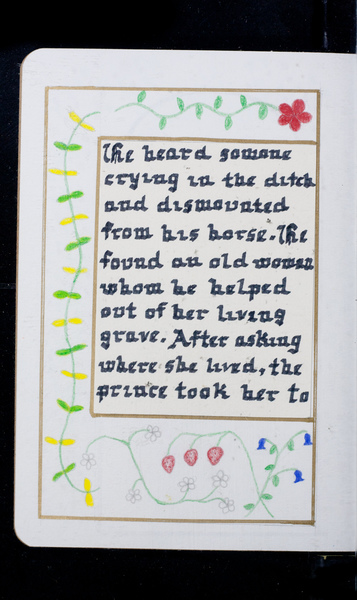 The heard somone
crying in the ditch
and dismounted
from his horse. The
found an old woman
whom he helped
out of her living
grave. After asking
where she lived, the
prince took her to